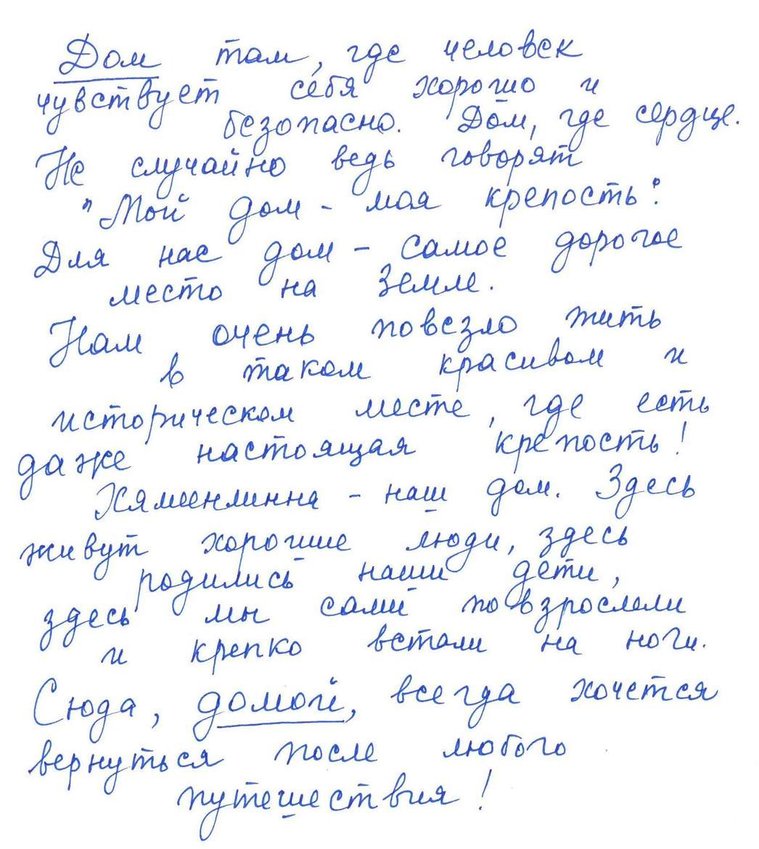 Дом там, где человек
чувствует себя хорошо и
безопасно. Дом, где сердце.
Не случайно ведь говорят
"Мой дом - моя крепость".
Для нас дом - самое дорогое
место на земле.
Нам очень повезло жить
в таком красивом и
историческом месте, где есть
даже настоящая крепость!
Хяменлинна - наш дом. Здесь
живут хорошие люди, здесь
родились наши дети,
здесь мы сами повзрослели
и крепко встали на ноги.
Сюда, домой, всегда хочется
вернуться после любого
путешествия!